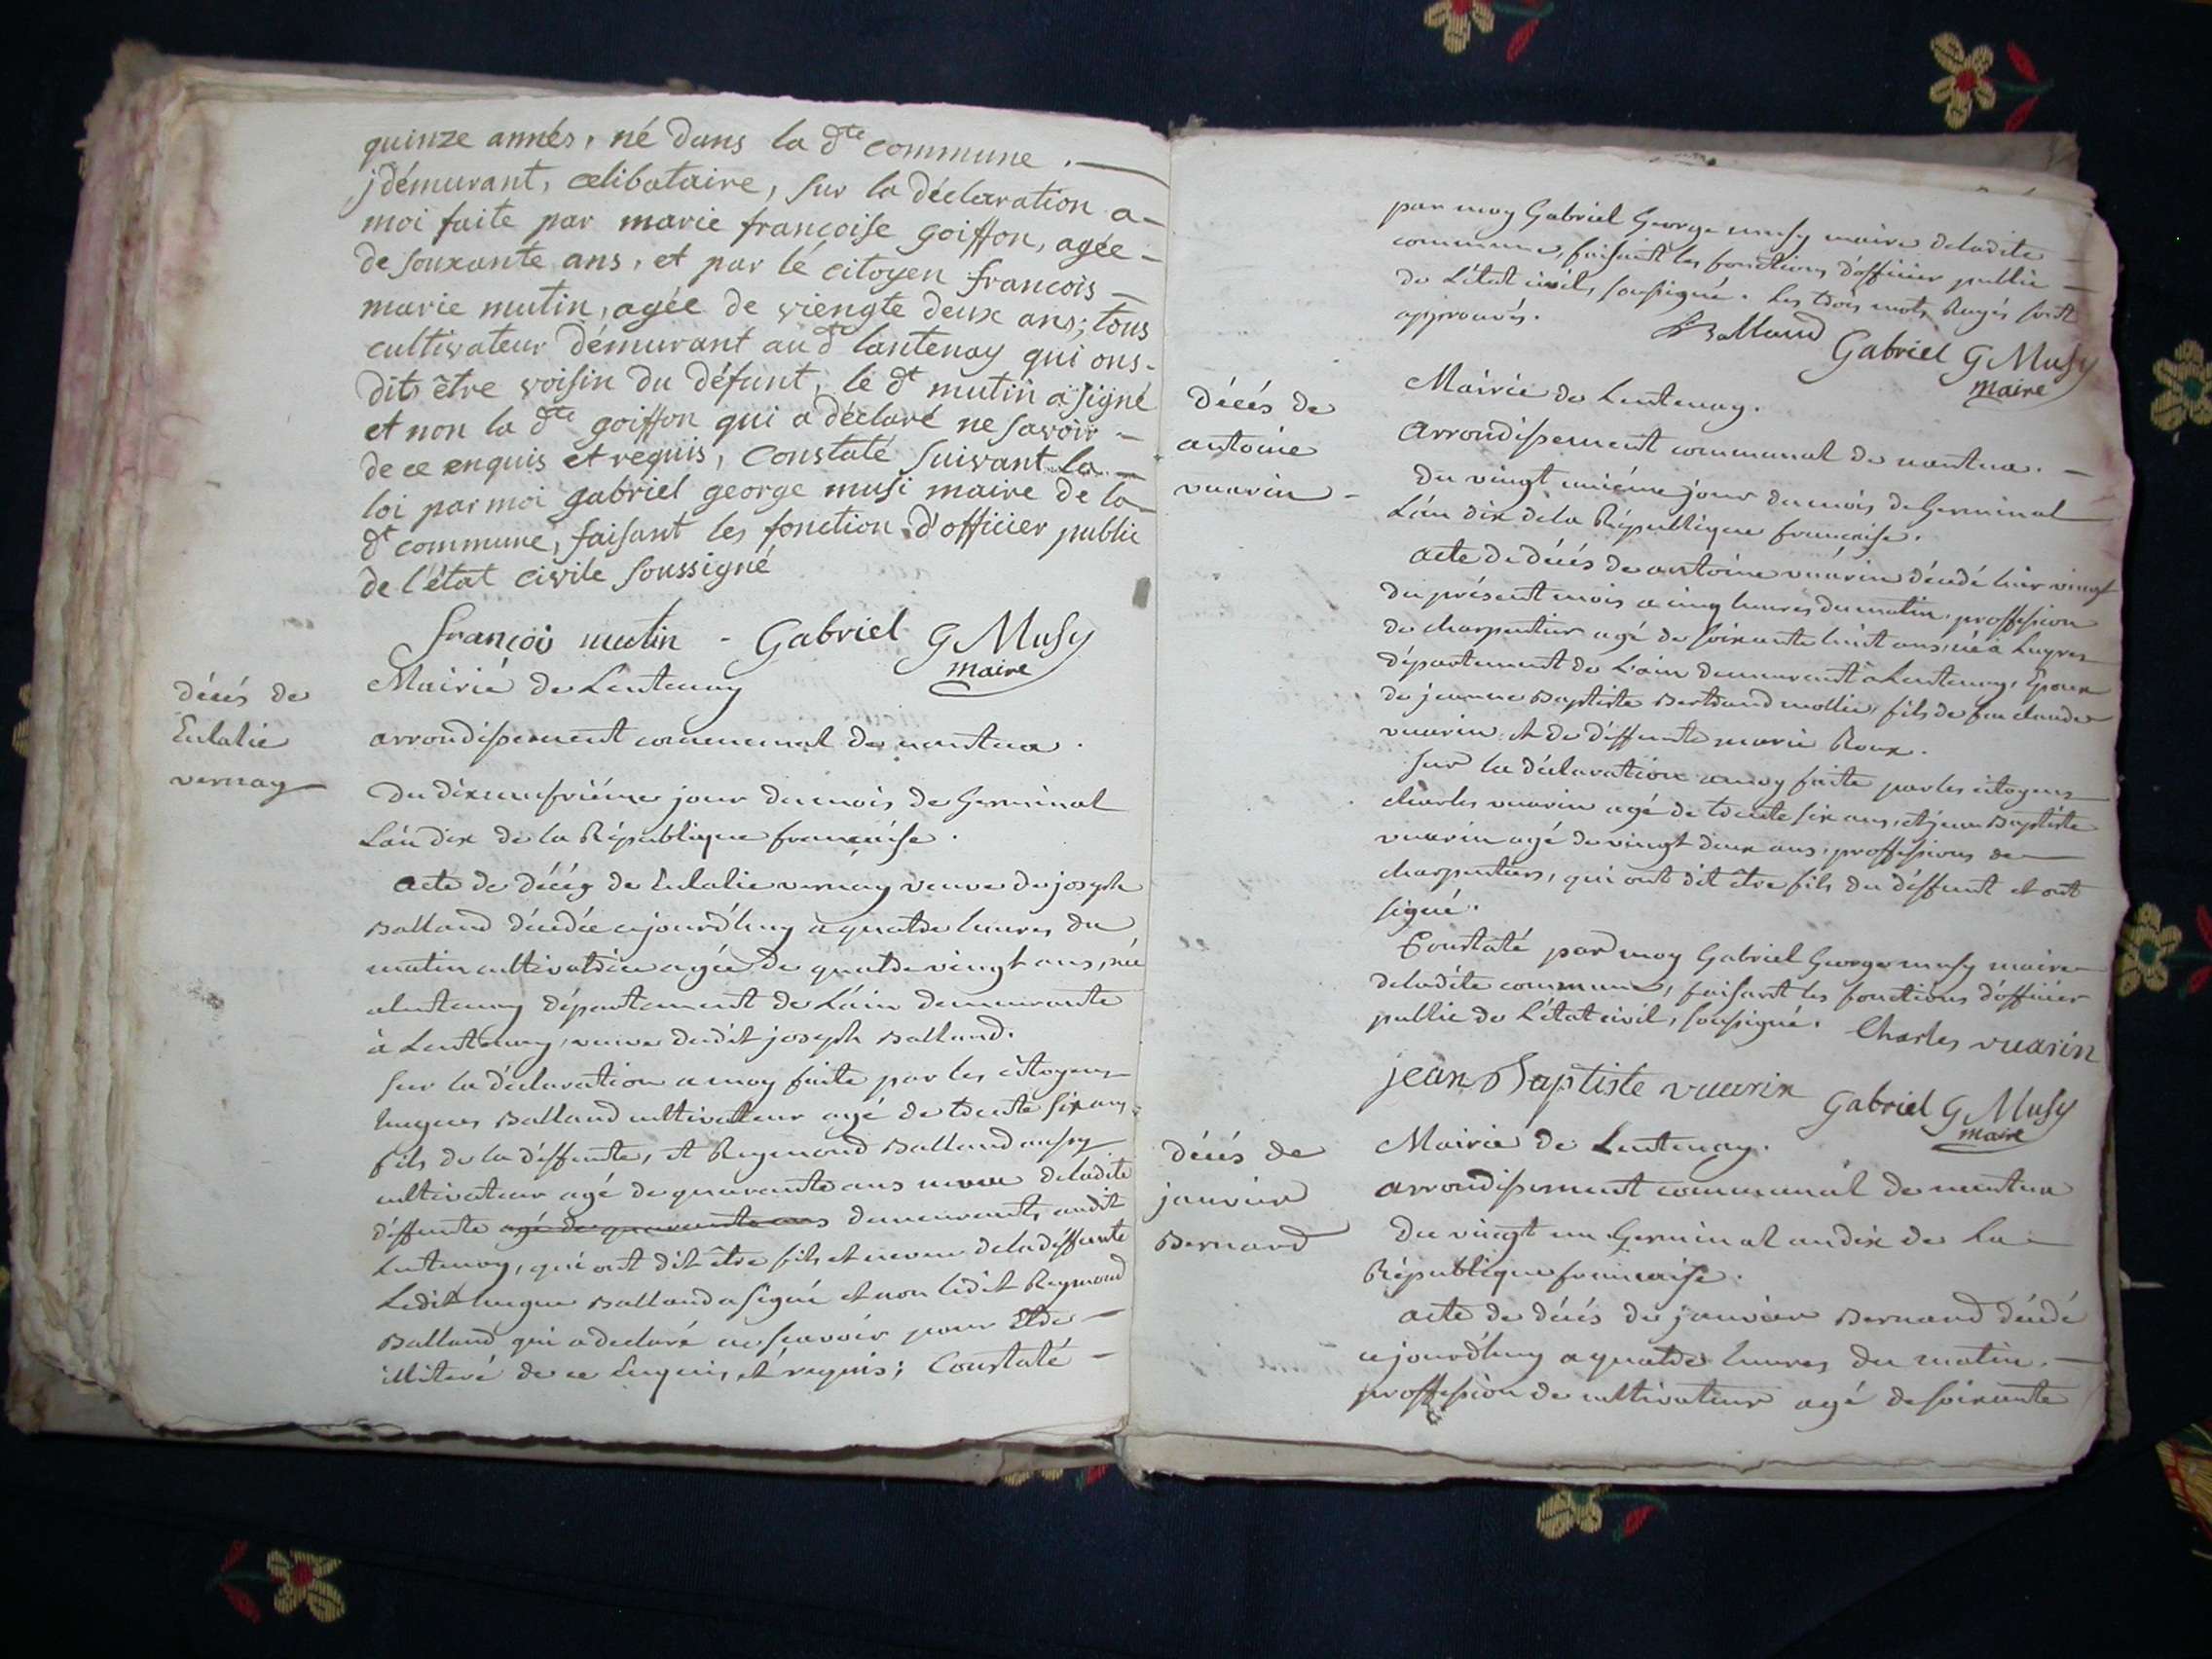 quinze annés, né dans la dte commune .
jdémurant, celibataire, sur la déclaration a
moi faite par marie francoise goiffon, agée
de souxante ans, et par lé citoyen francois
marie mutin, agée de viengte deux ans; tous
cultivateur démurant au dt lantenay qui ons
dit être voisin du défunt, le dt mutin a signé
et non la dte goiffon qui a déclaré ne savoir
de ce enquis et requis, Constaté suivant la
loi par moi gabriel george musi maire de la
dt commune, faisant les fonction d'officier public
de l'état civile soussigné
françois mutin - Gabriel G Musy
maire
décés de
Eulalie
vernay
Mairié de Lentenay
arrondissement communal de nantua .
Du dixneufvième jour du mois de Germinal
L'an dix de la République française .
acte de décés de Eulalie vernay veuve de joseph
Balland décédée cejourd'huy a quatre heures du
matin cultivatrice agée de quatre vingt ans, née
alentenay département de L'ain demeurante
à Lentenay, veuve dudit joseph Balland.
sur la déclaration a moy faite par les citoyens
hugues Balland cultivateur agé de trente six ans
fils de la déffunte, et Reymond Balland aussy
cultivateur agé de quarante ans neveu de ladite
déffunte agé de quarante ans demeurants audit
Lentenay, qui ont dit être fils et neveu de la déffunte
Ledit hugue Balland a signé et non ledit Reymond
Balland qui a declaré ne sçavoir pour Etre
illiteré de ce Enquis, et requis; Constaté
par moy Gabriel George musy maire de ladite
commune, faisant les fonctions d'officier public
de L'état civil, soussigné. Les trois mots Rayés sont
approuvés.
Balland Gabriel G Musy
maire
décés de
antoine
vuarin
Mairie de Lentenay.
arrondissement communal de nantua.
du vingt unième jour du mois de Germinal
L'an dix de la République française.
acte de décés de antoine vuarin décédé hier vingt
du présent mois a cinq heures du matin, proffession
de charpentier agé de soixante huit ans, né à
département de L'ain demeurant à Lentenay, Epoux
de jeanne Baptiste Bertrand mollie, fils de feu claude
vuarin et de déffunte marie Roux.
sur la déclaration a moy faite par les citoyens
charles vuarin agé de trente six ans, et jean Baptiste
vuarin agé de vingt deux ans, proffessions de
charpentiers, qui ont dit être fils du déffunt et ont
signé.
Constaté par moy Gabriel George musy maire
de ladite commune, faisant les fonctions d'officier
public de L'état civil, soussigné. Charles vuarin
jean Baptiste vuarin Gabriel G Musy
maire
décés de
janvier
Bernard
Mairie de Lentenay.
arrondissement communal de nantua
Du vingt un Germinal an dix de La
République française.
acte de décés de janvier Bernard décédé
cejourd'huy a quatre heures du matin.
proffession de cultivateur agé de soixante